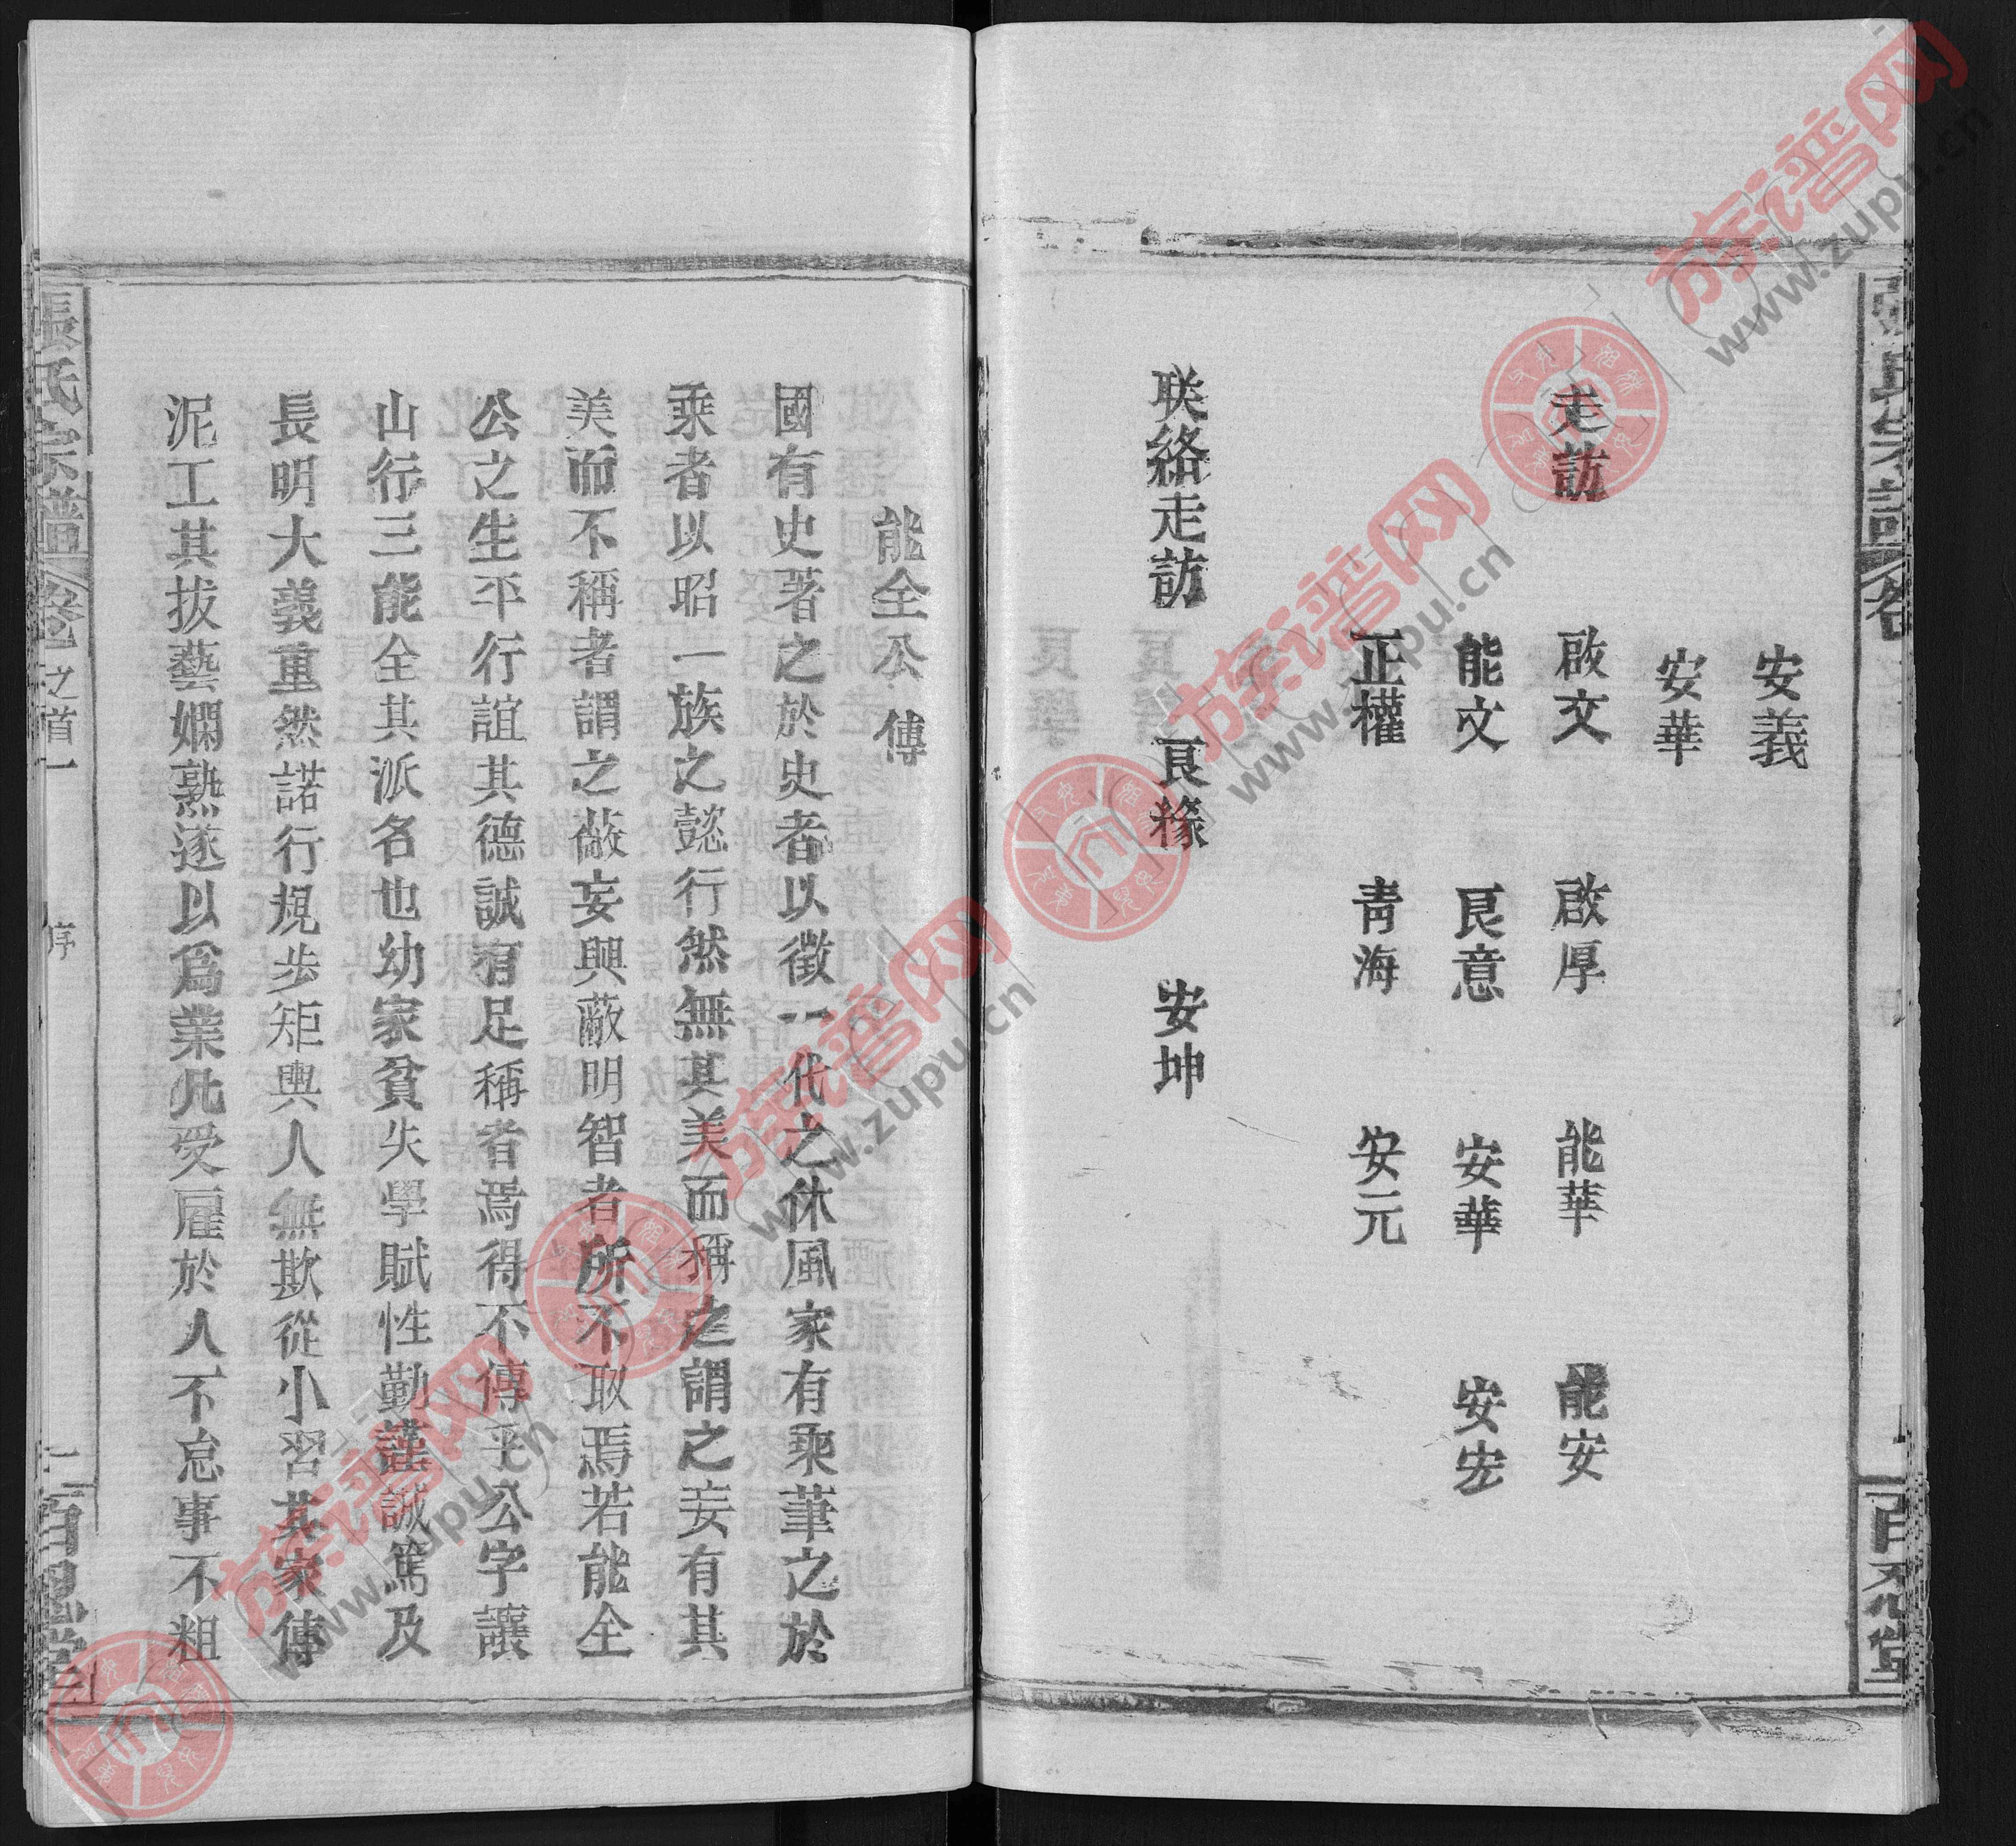 張氏宗譜
卷
百忍堂
安義
安華
走訪 啟文 啟厚 能華 能安
能文 艮意 安華 安宏
正權 青海 安元
联絡走訪 艮緣 安坤
能全公傳
國有史著之於史者以徵一代之休風家有乘筆之於
乘者以昭一族之懿行然無其美而稱之謂之妄有其
美而不稱者謂之蔽妄興蔽明智者所不取焉若能全
公之生平行誼其德誠有足稱者焉得不傳乎公字讓
山行三能全其派名也幼家貧失學賦性勤謹誠篤及
長明大義重然諾行規步矩輿人無欺從小習其家傳
泥工其拔藝嫻熟遂以爲業凡受雇於人不怠事不粗
張氏宗譜
卷之首一
序
二
百忍堂
族谱网
www.zupu.cn
族谱网
www.zupu.cn
族谱网
www.zupu.cn
族谱网
www.zupu.cn